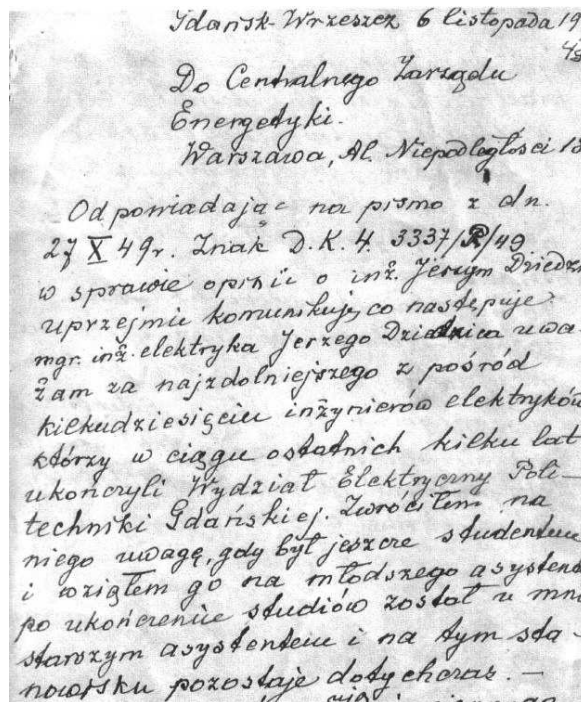 Gdańsk-Wrzeszcz 6 listopada 19
49
Do Centralnego Zarządu
Energetyki.
Warszawa, Al. Niepodległości 18
Odpowiadając na pismo z dn.
27 X 49r. Znak D.K.4. 3337/R/49
w sprawie opinii o inż. Jerzym
uprzejmie komunikuję, co następuje:
mgr. inż. elektryka Jerzego Dziedzica uwa-
żam za najzdolniejszego z pośród
kilkudziesięciu inżynierów elektryków
którzy w ciągu ostatnich kilku lat
ukończyli Wydział Elektryczny Poli-
techniki Gdańskiej. Zwróciłem na
niego uwagę, gdy był jeszcze studentem
i wziąłem go na młodszego asystent
po ukończeniu studiów został u mni
starszym asystentem i na tym sta-
nowisku pozostaje dotychczas. —